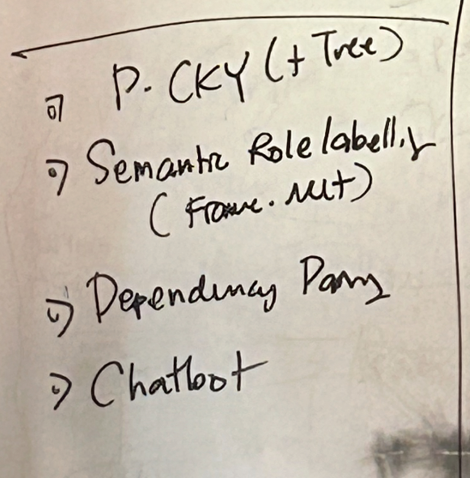 P. CKY (+ Tree)
Semantic Role labelling
(Frame. Net)
Dependency Parsing
Chatbot